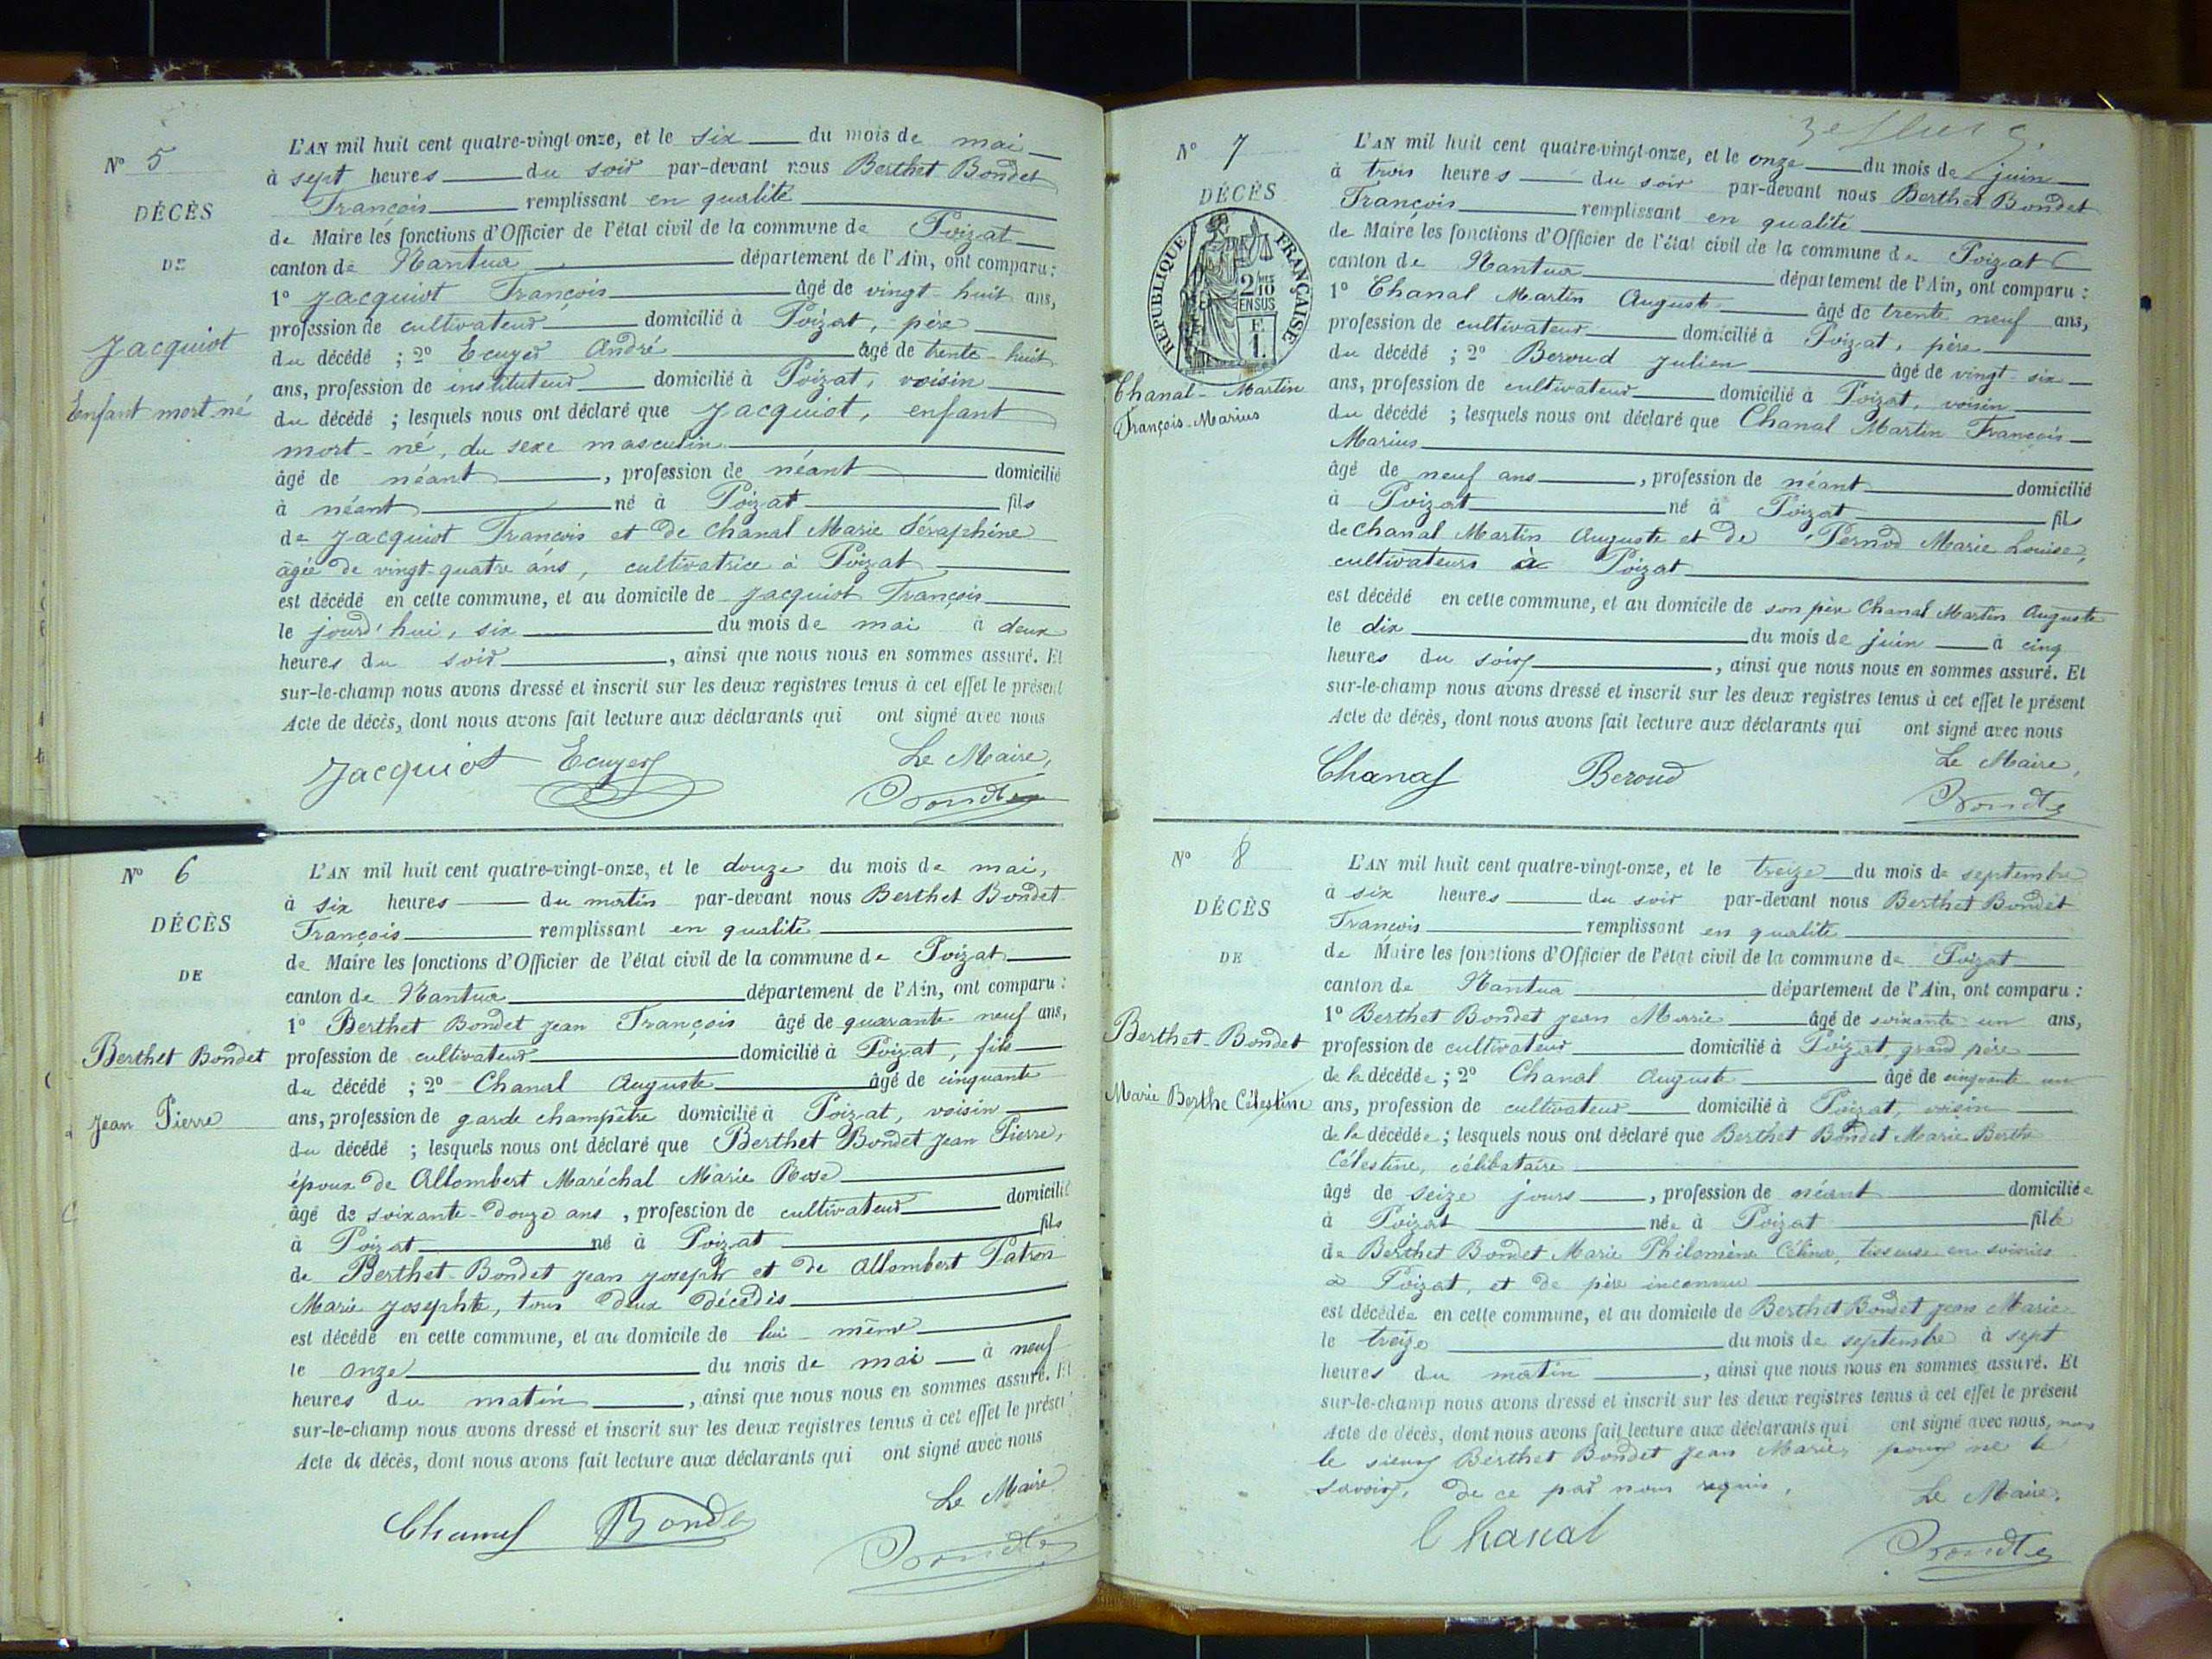 N° 5
DÉCÈS
DE
Jacquiot
Enfant mort-né
L'AN mil huit cent quatre-vingt onze, et le six du mois de mai
à sept heures du soir par-devant nous Berthet Bondet
François remplissant en qualité
de Maire les fonctions d'Officier de l'état civil de la commune de Poizat
canton de Nantua département de l'Ain, ont comparu :
1° Jacquiot François âgé de vingt-huit ans,
profession de cultivateur domicilié à Poizat, père
du décédé ; 2° Ecuyer André âgé de trente-huit
ans, profession de instituteur domicilié à Poizat, voisin
du décédé ; lesquels nous ont déclaré que Jacquiot, enfant
mort-né, du sexe masculin
âgé de néant, profession de néant domicilié
à néant né à Poizat fils
de Jacquiot François et de Chanal Marie Séraphine
âgée de vingt-quatre ans, cultivatrice à Poizat
est décédé en cette commune, et au domicile de Jacquiot François
le jourd'hui, six du mois de mai à deux
heures du soir, ainsi que nous nous en sommes assuré. Et
sur-le-champ nous avons dressé et inscrit sur les deux registres tenus à cet effet le présent
Acte de décès, dont nous avons fait lecture aux déclarants qui ont signé avec nous
Jacquiot Ecuyer Le Maire,
Bondet
N° 6
DÉCÈS
DE
Berthet Bondet
Jean Pierre
L'AN mil huit cent quatre-vingt-onze, et le douze du mois de mai,
à six heures du matin par-devant nous Berthet Bondet
François remplissant en qualité
de Maire les fonctions d'Officier de l'état civil de la commune de Poizat
canton de Nantua département de l'Ain, ont comparu :
1° Berthet Bondet Jean François âgé de quarante neuf ans,
profession de cultivateur domicilié à Poizat, fils
du décédé ; 2° Chanal Auguste âgé de cinquante
ans, profession de garde champêtre domicilié à Poizat, voisin
du décédé ; lesquels nous ont déclaré que Berthet Bondet Jean Pierre,
époux de Allombert Maréchal Marie Rose
âgé de soixante-douze ans, profession de cultivateur domicilié
à Poizat né à Poizat fils
de Berthet-Bondet Jean Joseph et de Allombert Patron
Marie Josephte, tous deux décédés
est décédé en cette commune, et au domicile de lui-même
le onze du mois de mai à neuf
heures du matin, ainsi que nous nous en sommes assuré. Et
sur-le-champ nous avons dressé et inscrit sur les deux registres tenus à cet effet le présent
Acte de décès, dont nous avons fait lecture aux déclarants qui ont signé avec nous
Le Maire
Chanal Bondet
Bondet
N° 7
DÉCÈS
RÉPUBLIQUE FRANÇAISE
2/10 EN SUS
E 1.
Chanal-Martin
François-Marius
L'AN mil huit cent quatre-vingt-onze, et le onze du mois de juin
à trois heures du soir par-devant nous Berthet Bondet
François remplissant en qualité
de Maire les fonctions d'Officier de l'état civil de la commune de Poizat
canton de Nantua département de l'Ain, ont comparu :
1° Chanal Martin Auguste âgé de trente neuf ans,
profession de cultivateur domicilié à Poizat, père
du décédé ; 2° Beroud Julien âgé de vingt-six
ans, profession de cultivateur domicilié à Poizat, voisin
du décédé ; lesquels nous ont déclaré que Chanal Martin François
Marius
âgé de neuf ans, profession de néant domicilié
à Poizat né à Poizat fils
de Chanal Martin Auguste et de Pernod Marie Louise,
cultivateurs à Poizat
est décédé en cette commune, et au domicile de son père Chanal Martin Auguste
le dix du mois de juin à cinq
heures du soir, ainsi que nous nous en sommes assuré. Et
sur-le-champ nous avons dressé et inscrit sur les deux registres tenus à cet effet le présent
Acte de décès, dont nous avons fait lecture aux déclarants qui ont signé avec nous
Le Maire,
Chanal Beroud
Bondet
N° 8
DÉCÈS
DE
Berthet-Bondet
Marie Berthe Célestine
L'AN mil huit cent quatre-vingt-onze, et le treize du mois de septembre
à six heures du soir par-devant nous Berthet Bondet
François remplissant en qualité
de Maire les fonctions d'Officier de l'état civil de la commune de Poizat
canton de Nantua département de l'Ain, ont comparu :
1° Berthet Bondet Jean Marie âgé de soixante un ans,
profession de cultivateur domicilié à Poizat, grand père
de la décédée ; 2° Chanal Auguste âgé de cinquante un
ans, profession de cultivateur domicilié à Poizat, voisin
de la décédée ; lesquels nous ont déclaré que Berthet Bondet Marie Berthe
Célestine, célibataire
âgé de seize jours, profession de néant domiciliée
à Poizat née à Poizat fille
de Berthet Bondet Marie Philomène Célina, tisseuse en soieries
à Poizat, et de père inconnu
est décédée en cette commune, et au domicile de Berthet Bondet Jean Marie
le treize du mois de septembre à sept
heures du matin, ainsi que nous nous en sommes assuré. Et
sur-le-champ nous avons dressé et inscrit sur les deux registres tenus à cet effet le présent
Acte de décès, dont nous avons fait lecture aux déclarants qui ont signé avec nous, non
le sieur Berthet Bondet Jean Marie, pour ne le
savoir, de ce par nous requis.
Le Maire.
Chanal
Bondet